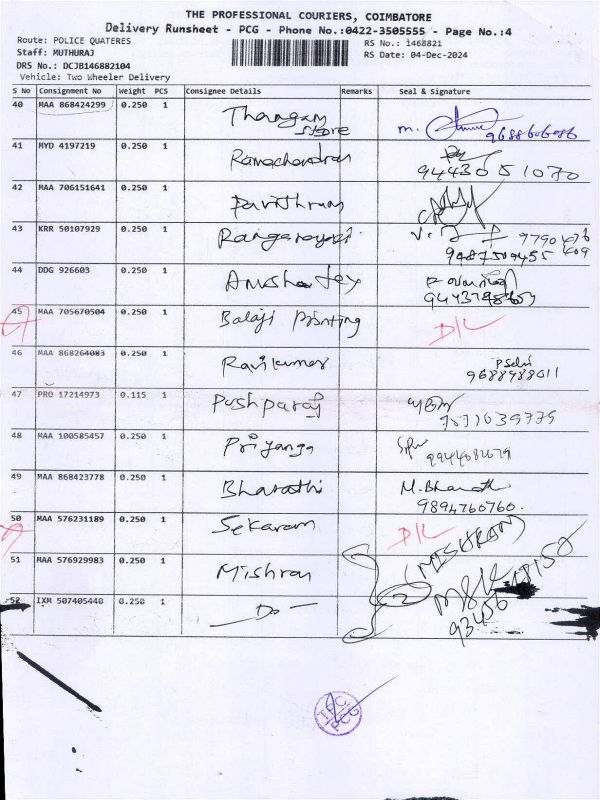 THE PROFESSIONAL COURIERS, COIMBATORE
Delivery Runsheet - PCG - Phone No.:0422-3505555 - Page No.:4
Route: POLICE QUATERES
RS No.: 1468821
Staff: MUTHURAJ
RS Date: 04-Dec-2024
DRS No.: DCJB146882104
Vehicle: Two Wheeler Delivery
S No Consignment No Weight PCS Consignee Details Remarks Seal & Signature
40 MAA 868424299 0.250 1 Thangam
Store m. 9688606086
41 MYD 4197219 0.250 1 Ramachandran
9443051070
42 MAA 706151641 0.250 1 Pavithram
43 KRR 50107929 0.250 1
44 DDG 926603 0.250 1
45 MAA 705670504 0.250 1 Balaji Printing D/L
46 MAA 868264083 0.250 1 Ravikumar P Selvi
9688988011
47 PRO 17214973 0.115 1 Pushparaj
48 MAA 100585457 0.250 1 Priyanga
49 MAA 868423778 0.250 1 Bharathi M.Bharath
9894760760.
50 MAA 576231189 0.250 1 Sekaram D/L
51 MAA 576929983 0.250 1 Mishran (MISHRAN)
52 IXM 507405440 0.250 1 — Do — 2
PCG